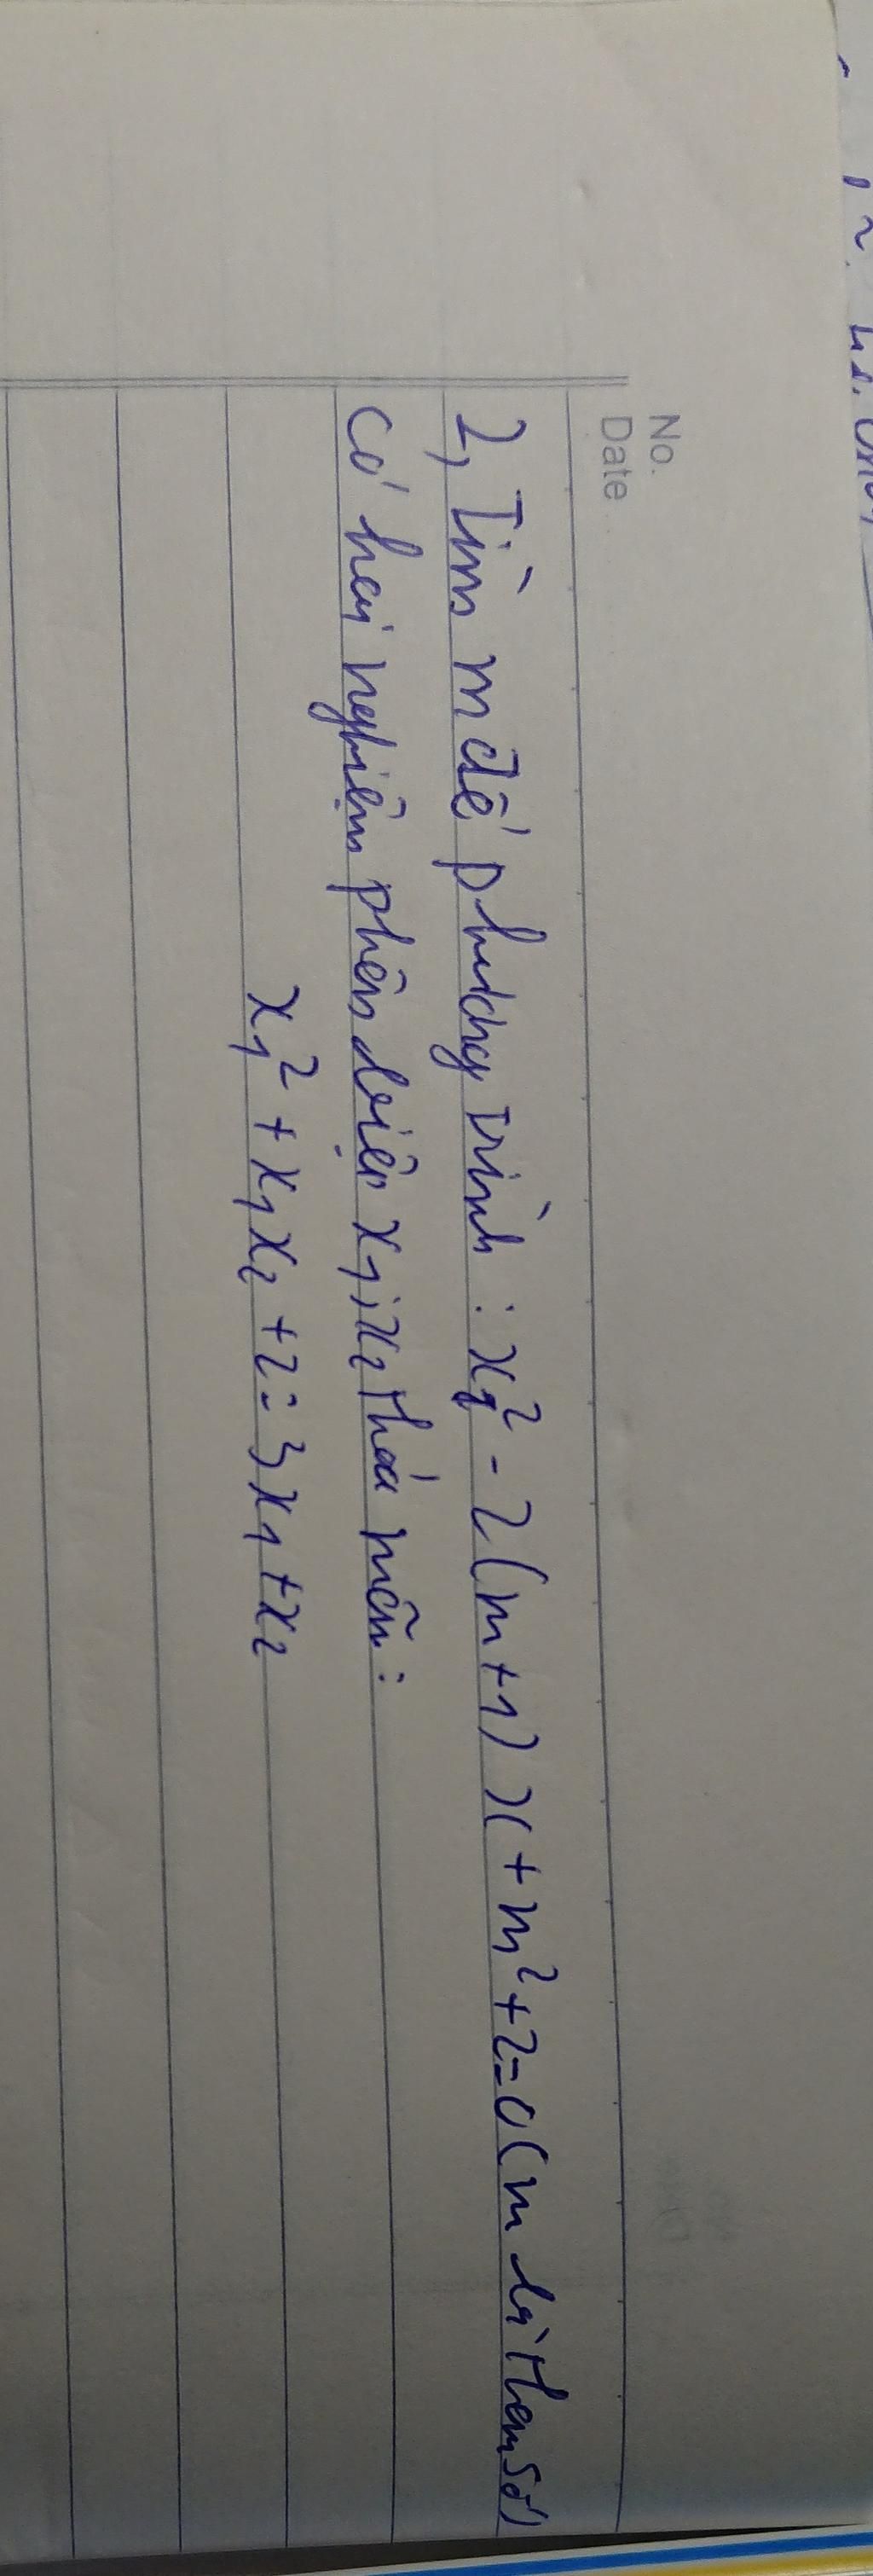 No.
Date
2, Tìm m để phương trình : x² - 2(m+1)x + m²+2=0 (m là tham số)
có hai nghiệm phân biệt x₁; x₂ thỏa mãn :
x₁² + x₁x₂ +2 = 3x₁ + x₂